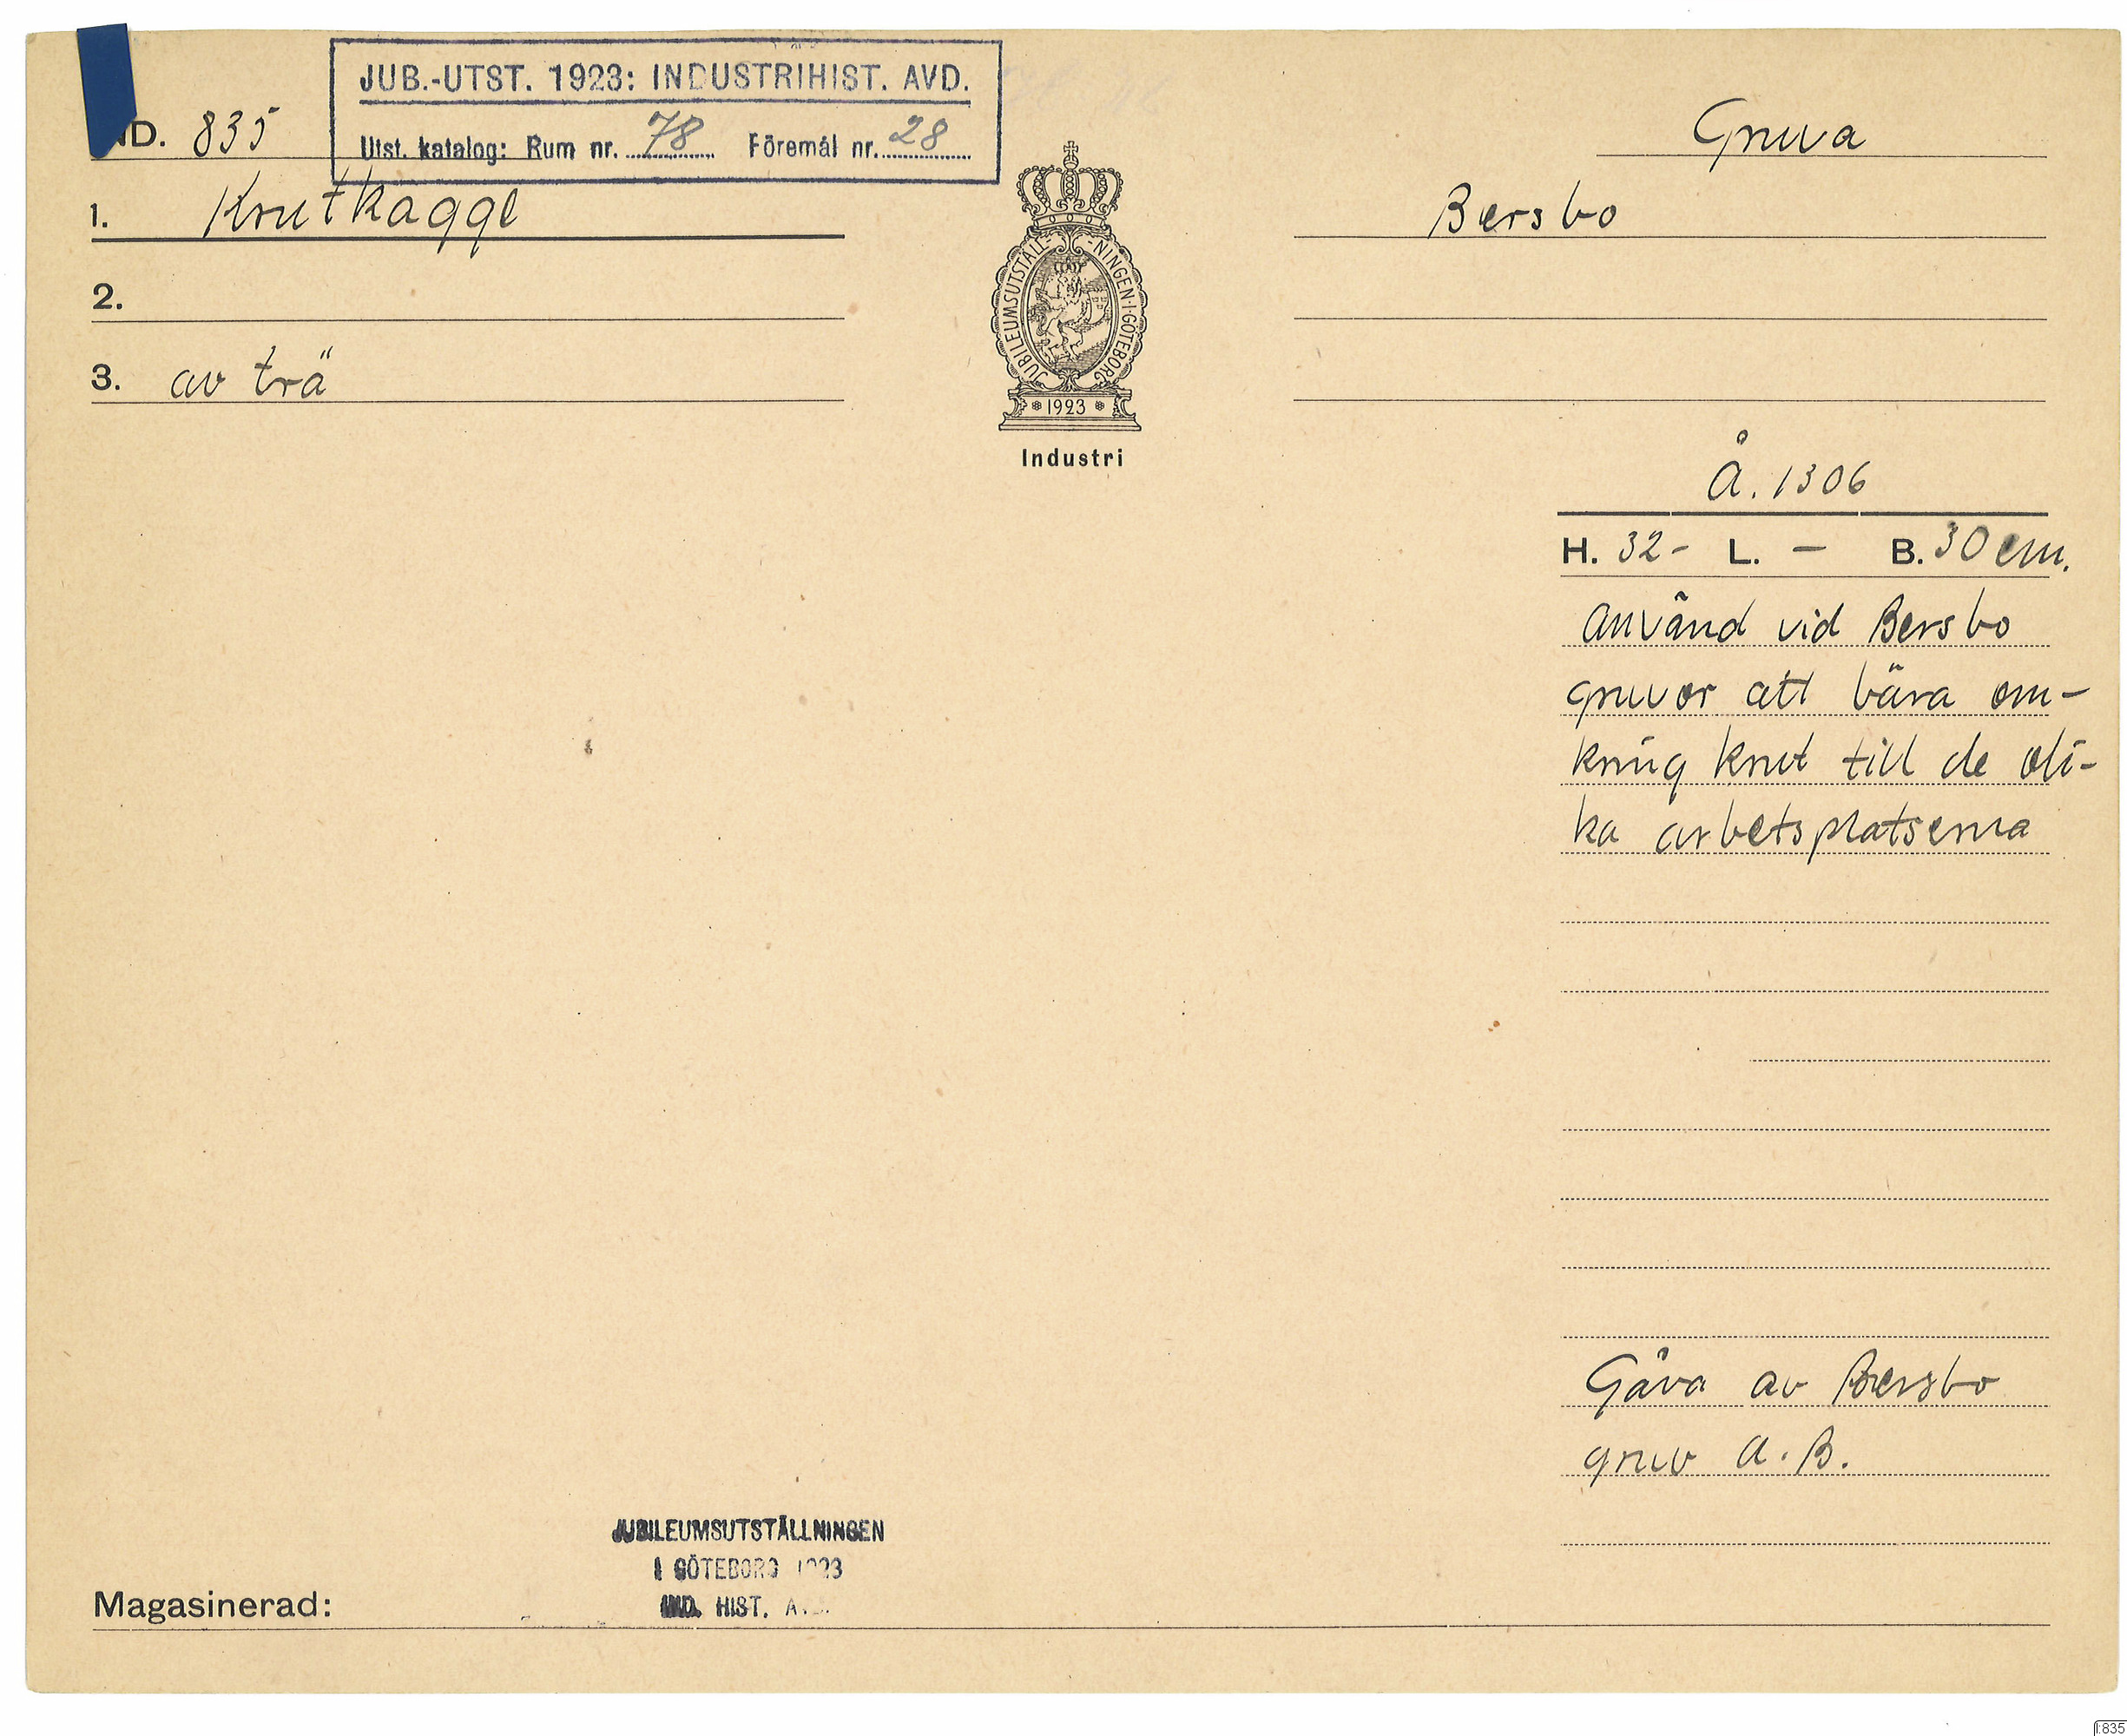 JUB.-UTST. 1923: INDUSTRIHIST. AVD.
Utst. katalog: Rum nr. 78 Föremål nr. 28
ND. 835
1. Krutkagge
2.
3. av trä
JUBILEUMSUTSTÄLL-NINGEN·I·GÖTEBORG
1923
Industri
Gruva
Bersbo
Å. 1306
H. 32- L. — B. 30 cm.
Använd vid Bersbo
gruvor att bära om-
kring krut till de oli-
ka arbetsplatserna
Gåva av Bersbo
gruv A.B.
JUBILEUMSUTSTÄLLNINGEN
I GÖTEBORG 1923
IND. HIST.
Magasinerad:
I:835